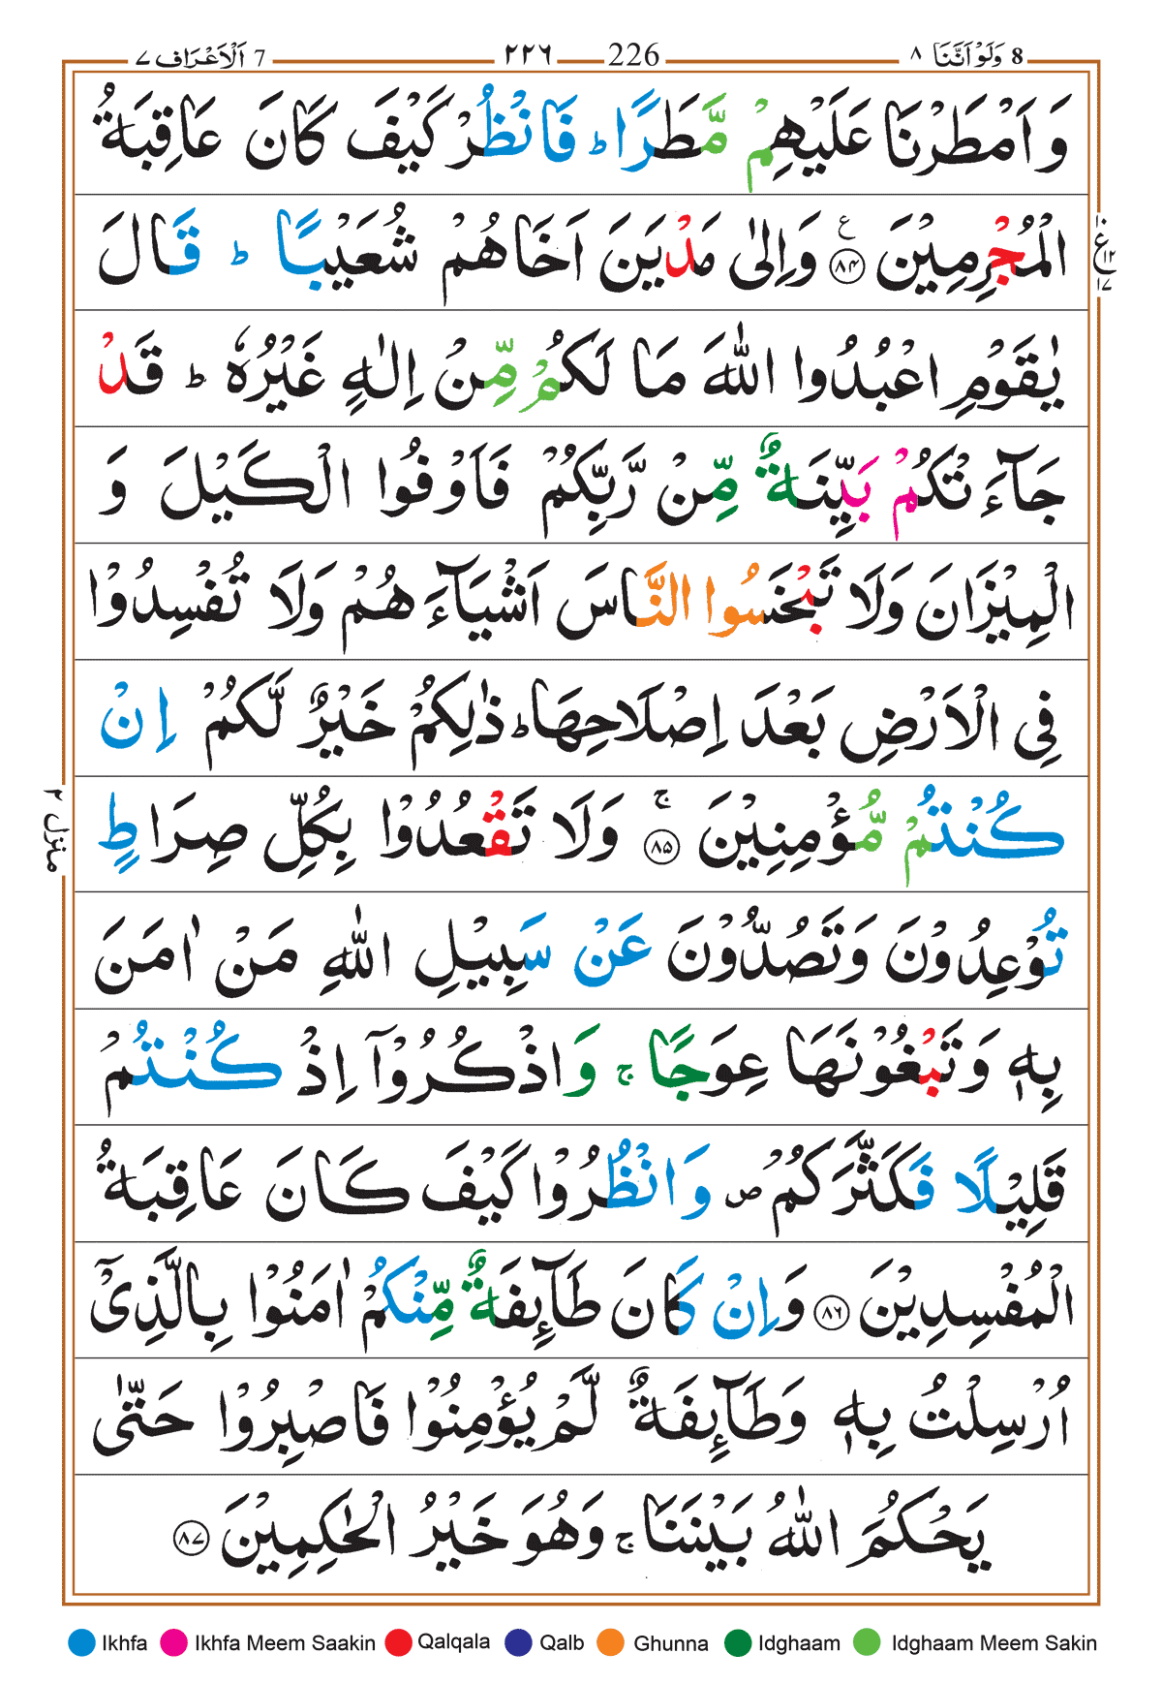 8 وَلَوْاَنَّنَا ٨ 226 ٢٢٦ 7 اَلْاَعْرَاف ٧
وَ اَمْطَرْنَا عَلَيْهِمْ مَّطَرًا ؕ فَانْظُرْ كَيْفَ كَانَ عَاقِبَةُ
الْمُجْرِمِيْنَ ۨ ٨٤ ع وَاِلٰى مَدْيَنَ اَخَاهُمْ شُعَيْبًا ؕ قَالَ
ع ١٢ ١٧
يٰقَوْمِ اعْبُدُوا اللّٰهَ مَا لَكُمْ مِّنْ اِلٰهٍ غَيْرُهٗ ؕ قَدْ
جَآءَتْكُمْ بَيِّنَةٌ مِّنْ رَّبِّكُمْ فَاَوْفُوا الْكَيْلَ وَ
الْمِيْزَانَ وَلَا تَبْخَسُوا النَّاسَ اَشْيَآءَهُمْ وَلَا تُفْسِدُوْا
فِى الْاَرْضِ بَعْدَ اِصْلَاحِهَا ؕ ذٰلِكُمْ خَيْرٌ لَّكُمْ اِنْ
كُنْتُمْ مُّؤْمِنِيْنَ ۚ ٨٥ وَلَا تَقْعُدُوْا بِكُلِّ صِرَاطٍ
منزل ٢
تُوْعِدُوْنَ وَتَصُدُّوْنَ عَنْ سَبِيْلِ اللّٰهِ مَنْ اٰمَنَ
بِهٖ وَتَبْغُوْنَهَا عِوَجًا ۚ وَاذْكُرُوْۤا اِذْ كُنْتُمْ
قَلِيْلًا فَكَثَّرَكُمْ ۪ وَانْظُرُوْا كَيْفَ كَانَ عَاقِبَةُ
الْمُفْسِدِيْنَ ٨٦ وَاِنْ كَانَ طَآئِفَةٌ مِّنْكُمْ اٰمَنُوْا بِالَّذِىْۤ
اُرْسِلْتُ بِهٖ وَطَآئِفَةٌ لَّمْ يُؤْمِنُوْا فَاصْبِرُوْا حَتّٰى
يَحْكُمَ اللّٰهُ بَيْنَنَا ۚ وَهُوَ خَيْرُ الْحٰكِمِيْنَ ٨٧
Ikhfa Ikhfa Meem Saakin Qalqala Qalb Ghunna Idghaam Idghaam Meem Sakin